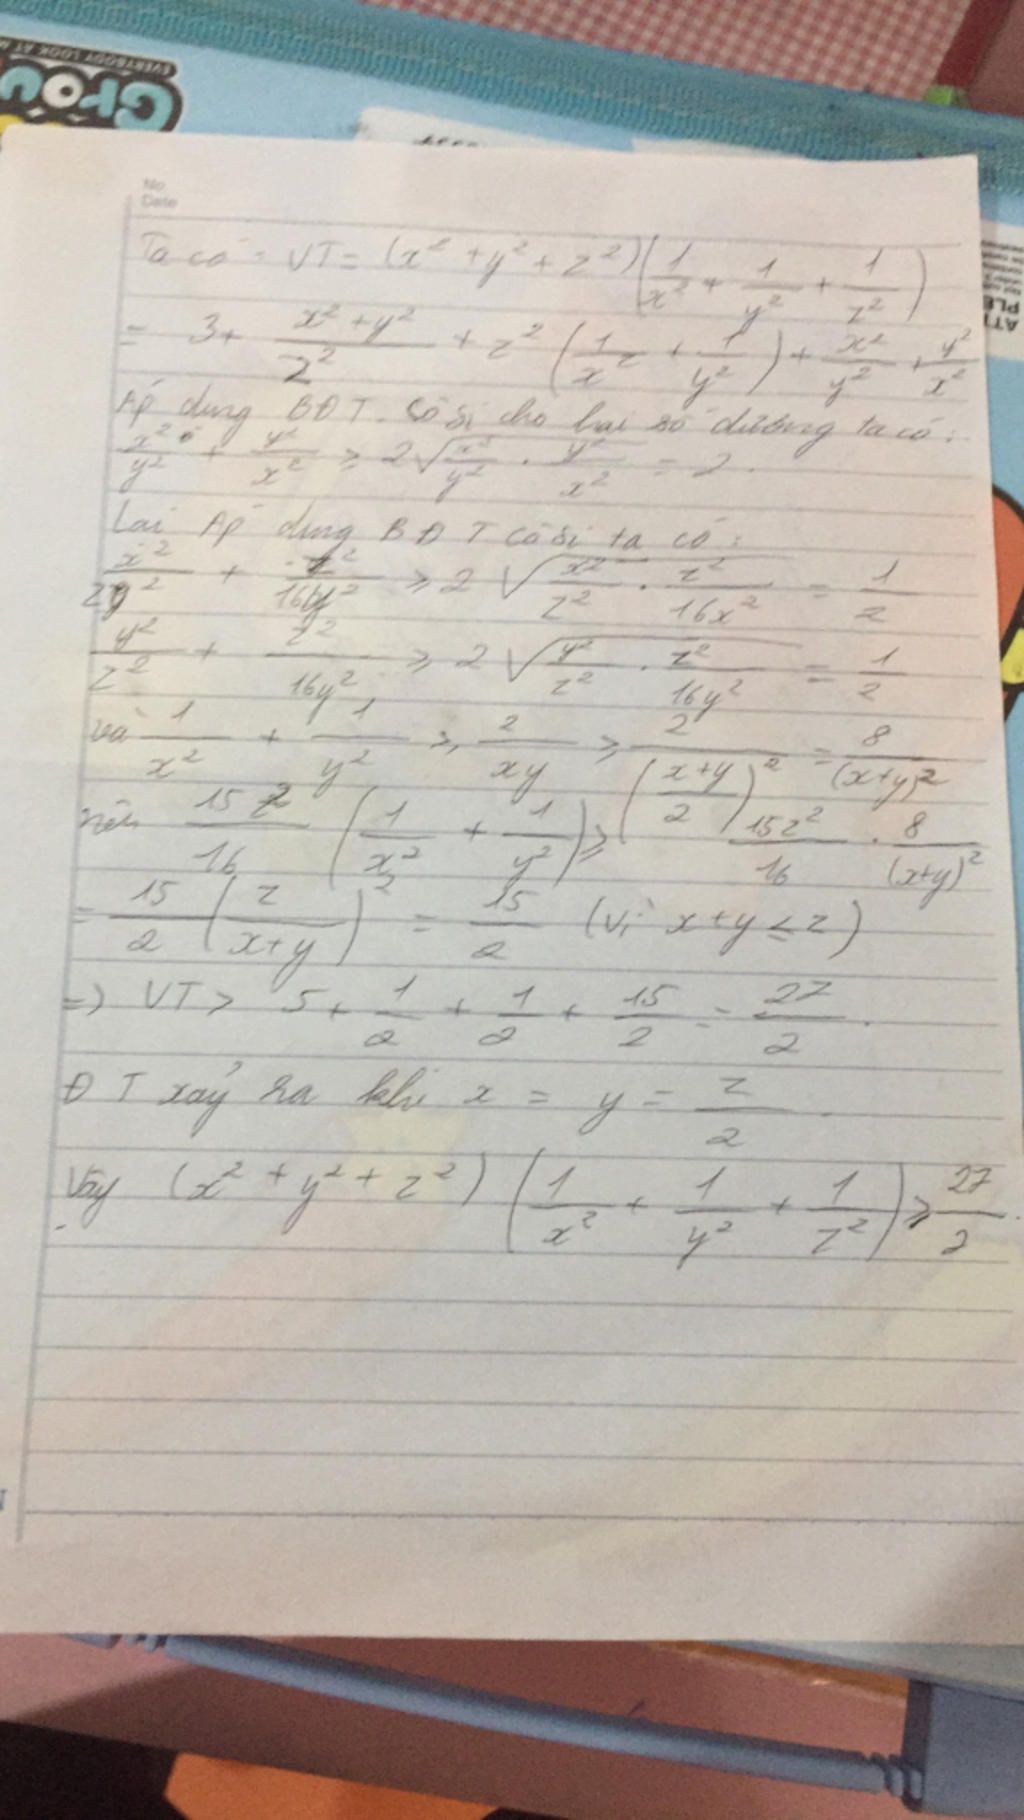 EVERYBODY LOOK AT
No.
Date
Ta có: VT = (x² + y² + z²)(1/x² + 1/y² + 1/z²)
= 3 + (x² + y²)/z² + z²(1/x² + 1/y²) + x²/y² + y²/x²
Áp dụng BĐT Cô si cho hai số dương ta có:
x²/y² + y²/x² ≥ 2√(x²/y² . y²/x²) = 2.
Lại Áp dụng BĐT Cô si ta có:
x²/z² + z²/16x² ≥ 2√(x²/z² . z²/16x²) = 1/2
y²/z² + z²/16y² ≥ 2√(y²/z² . z²/16y²) = 1/2
và 1/x² + 1/y² ≥ 2/xy ≥ 2/((x+y)/2)² = 8/(x+y)²
nên 15z²/16 (1/x² + 1/y²) ≥ 15z²/16 . 8/(x+y)²
= 15/2 (z/(x+y))² = 15/2 (vì x+y ≤ z)
=> VT > 5 + 1/2 + 1/2 + 15/2 = 27/2.
ĐT xảy ra khi x = y = z/2.
Vậy (x² + y² + z²)(1/x² + 1/y² + 1/z²) ≥ 27/2.